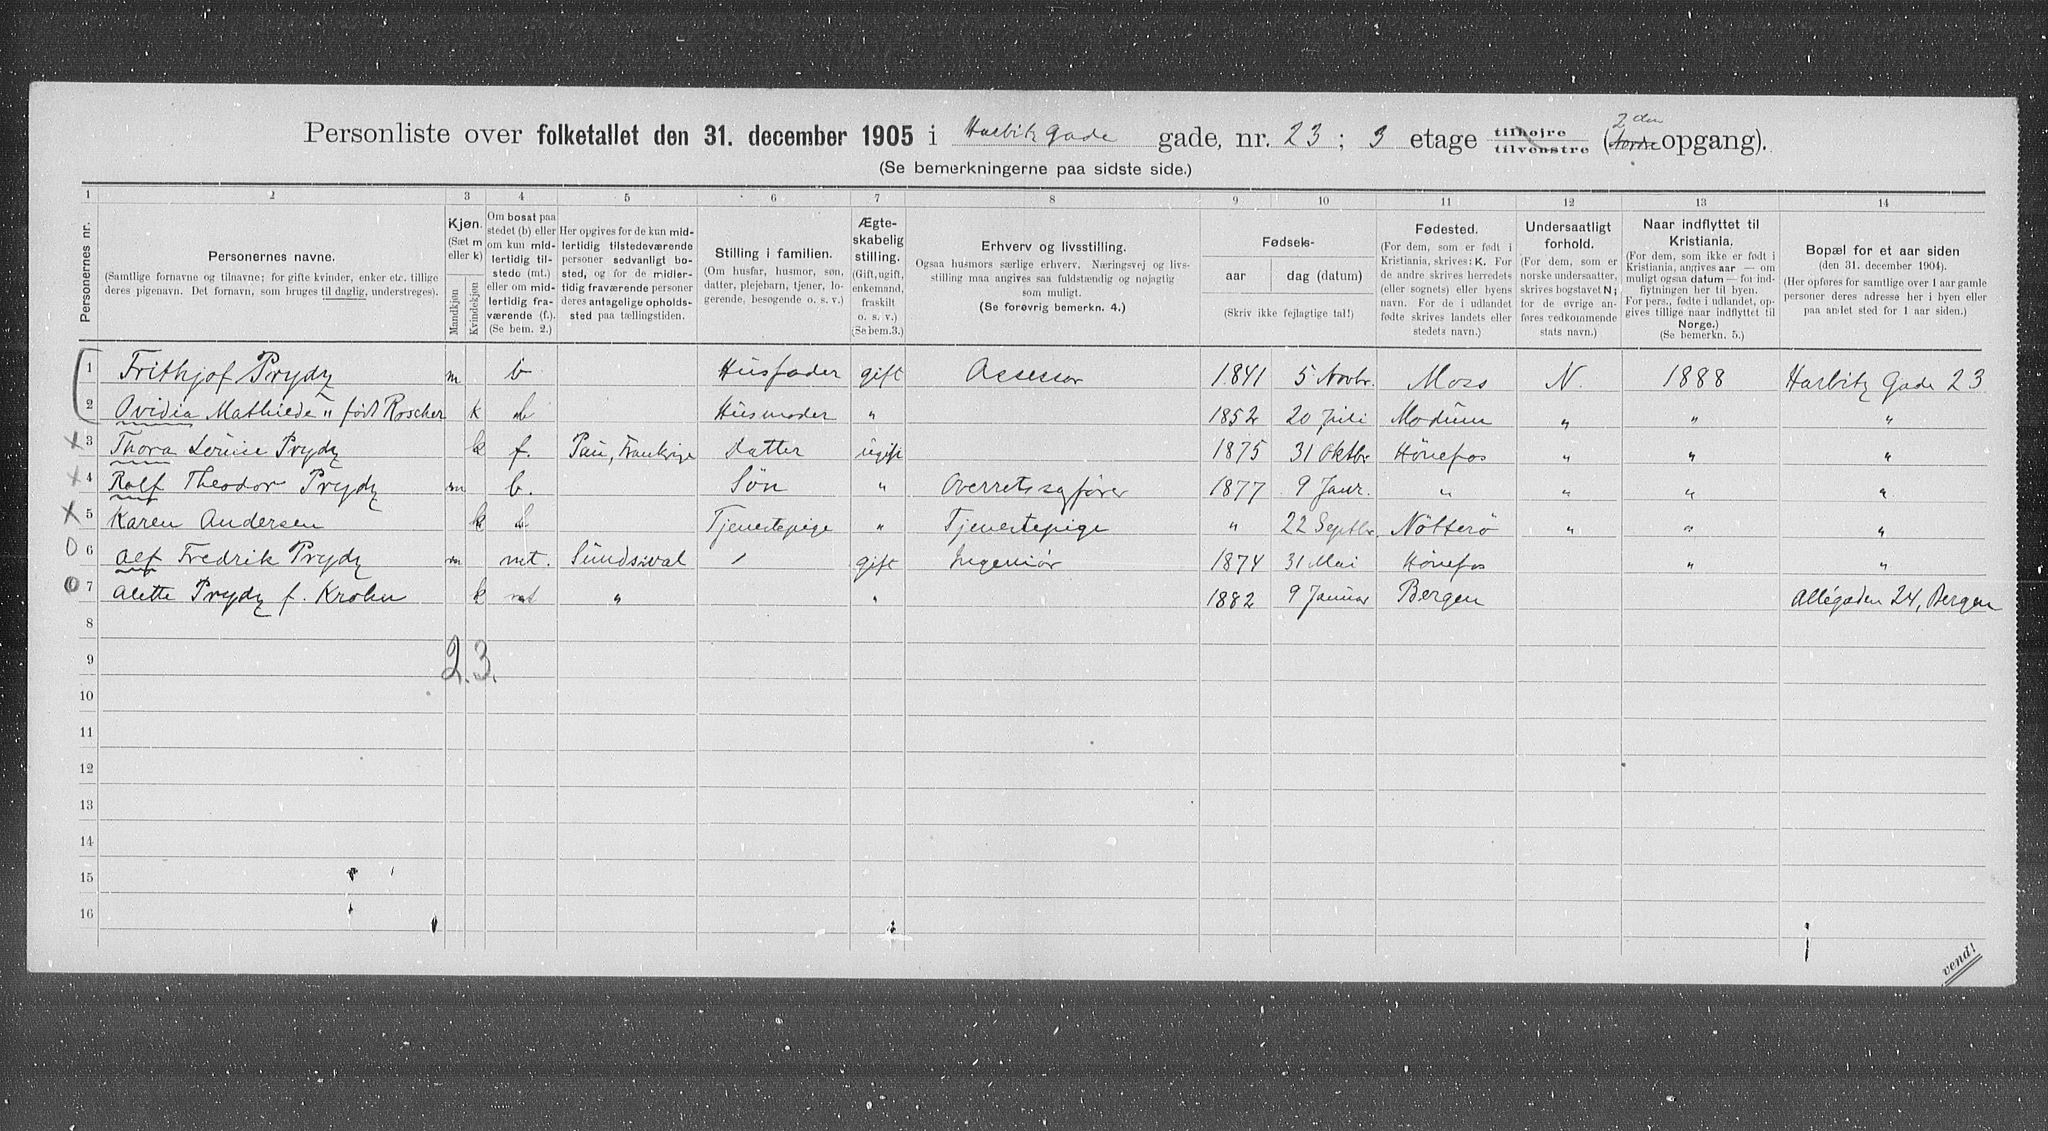 Personliste over folketallet den 31. december 1905 i Harbitz Gade gade, nr. 23; 3 etage tilhøjre tilvenstre (2den opgang).
(Se bemerkningerne paa sidste side.)
1 2 3 4 5 6 7 8 9 10 11 12 13 14
Personernes nr.
Personernes navne.
(Samtlige fornavne og tilnavne; for gifte kvinder, enker etc. tillige deres pigenavn. Det fornavn, som bruges til daglig, understreges).
Kjøn.
(Sæt m eller k)
Mandkjøn
Kvindekjøn
Om bosat paa stedet (b) eller om kun midlertidig tilstede (mt.) eller om midlertidig fraværende (f.). (Se bem. 2.)
Her opgives for de kun midlertidig tilstedeværende personer sedvanligt bosted, og for de midlertidig fraværende personer deres antagelige opholdssted paa tællingstiden.
Stilling i familien.
(Om husfar, husmor, søn, datter, plejebarn, tjener, logerende, besøgende o. s. v.)
Ægteskabelig stilling.
(Gift, ugift, enkemand, fraskilt o. s. v.)
(Se bem.3.)
Erhverv og livsstilling.
Ogsaa husmors særlige erhverv. Næringsvej og livsstilling maa angives saa fuldstændig og nøjagtig som muligt.
(Se forøvrig bemerkn. 4.)
Fødsels-
aar
dag (datum)
(Skriv ikke fejlagtige tal!)
Fødested.
(For dem, som er født i Kristiania, skrives: K. For de andre skrives herredets (eller sognets) eller byens navn. For de i udlandet fødte skrives landets eller stedets navn.)
Undersaatligt forhold.
(For de, som er norske undersaatter, skrives bogstavet N; for de øvrige anføres vedkommende stats navn.)
Naar indflyttet til Kristiania.
(For dem, som ikke er født i Kristiania, angives aar — om muligt ogsaa datum — for indflytningen her til byen. For pers., fødte i udlandet, opgives tillige naar indflyttet til Norge.)
(Se bemerkn. 5.)
Bopæl for et aar siden
(den 31. december 1904).
(Her opføres for samtlige over 1 aar gamle personer deres adresse her i byen eller paa andet sted for 1 aar siden.)
1 Frithjof Prydz m b Husfader gift Assessor 1841 5 Novbr. Moss N. 1888 Harbitz Gade 23
2 Ovidia Mathilde " født Roscher k b Husmoder " 1852 20 Juli Modum " " "
3 Thora Louise Prydz k f. Paris, Frankrige Datter ugift 1875 31 Oktbr Hönefos " " "
4 Rolf Theodor Prydz m b. Sön " Overretssagfører 1877 9 Janr. " " " "
5 Karen Andersen k b Tjenestepige " Tjenestepige " 22 Septbr. Nötterö " " "
6 Alf Fredrik Prydz m mt. Sundsvall gift Ingeniör 1874 31 Mai Hönefos " "
7 Alette Prydz f. Krohn k mt " " 1882 9 Januar Bergen Allégaden 24, Bergen
8
2. 3.
9
10
11
12
13
14
15
16
vend!